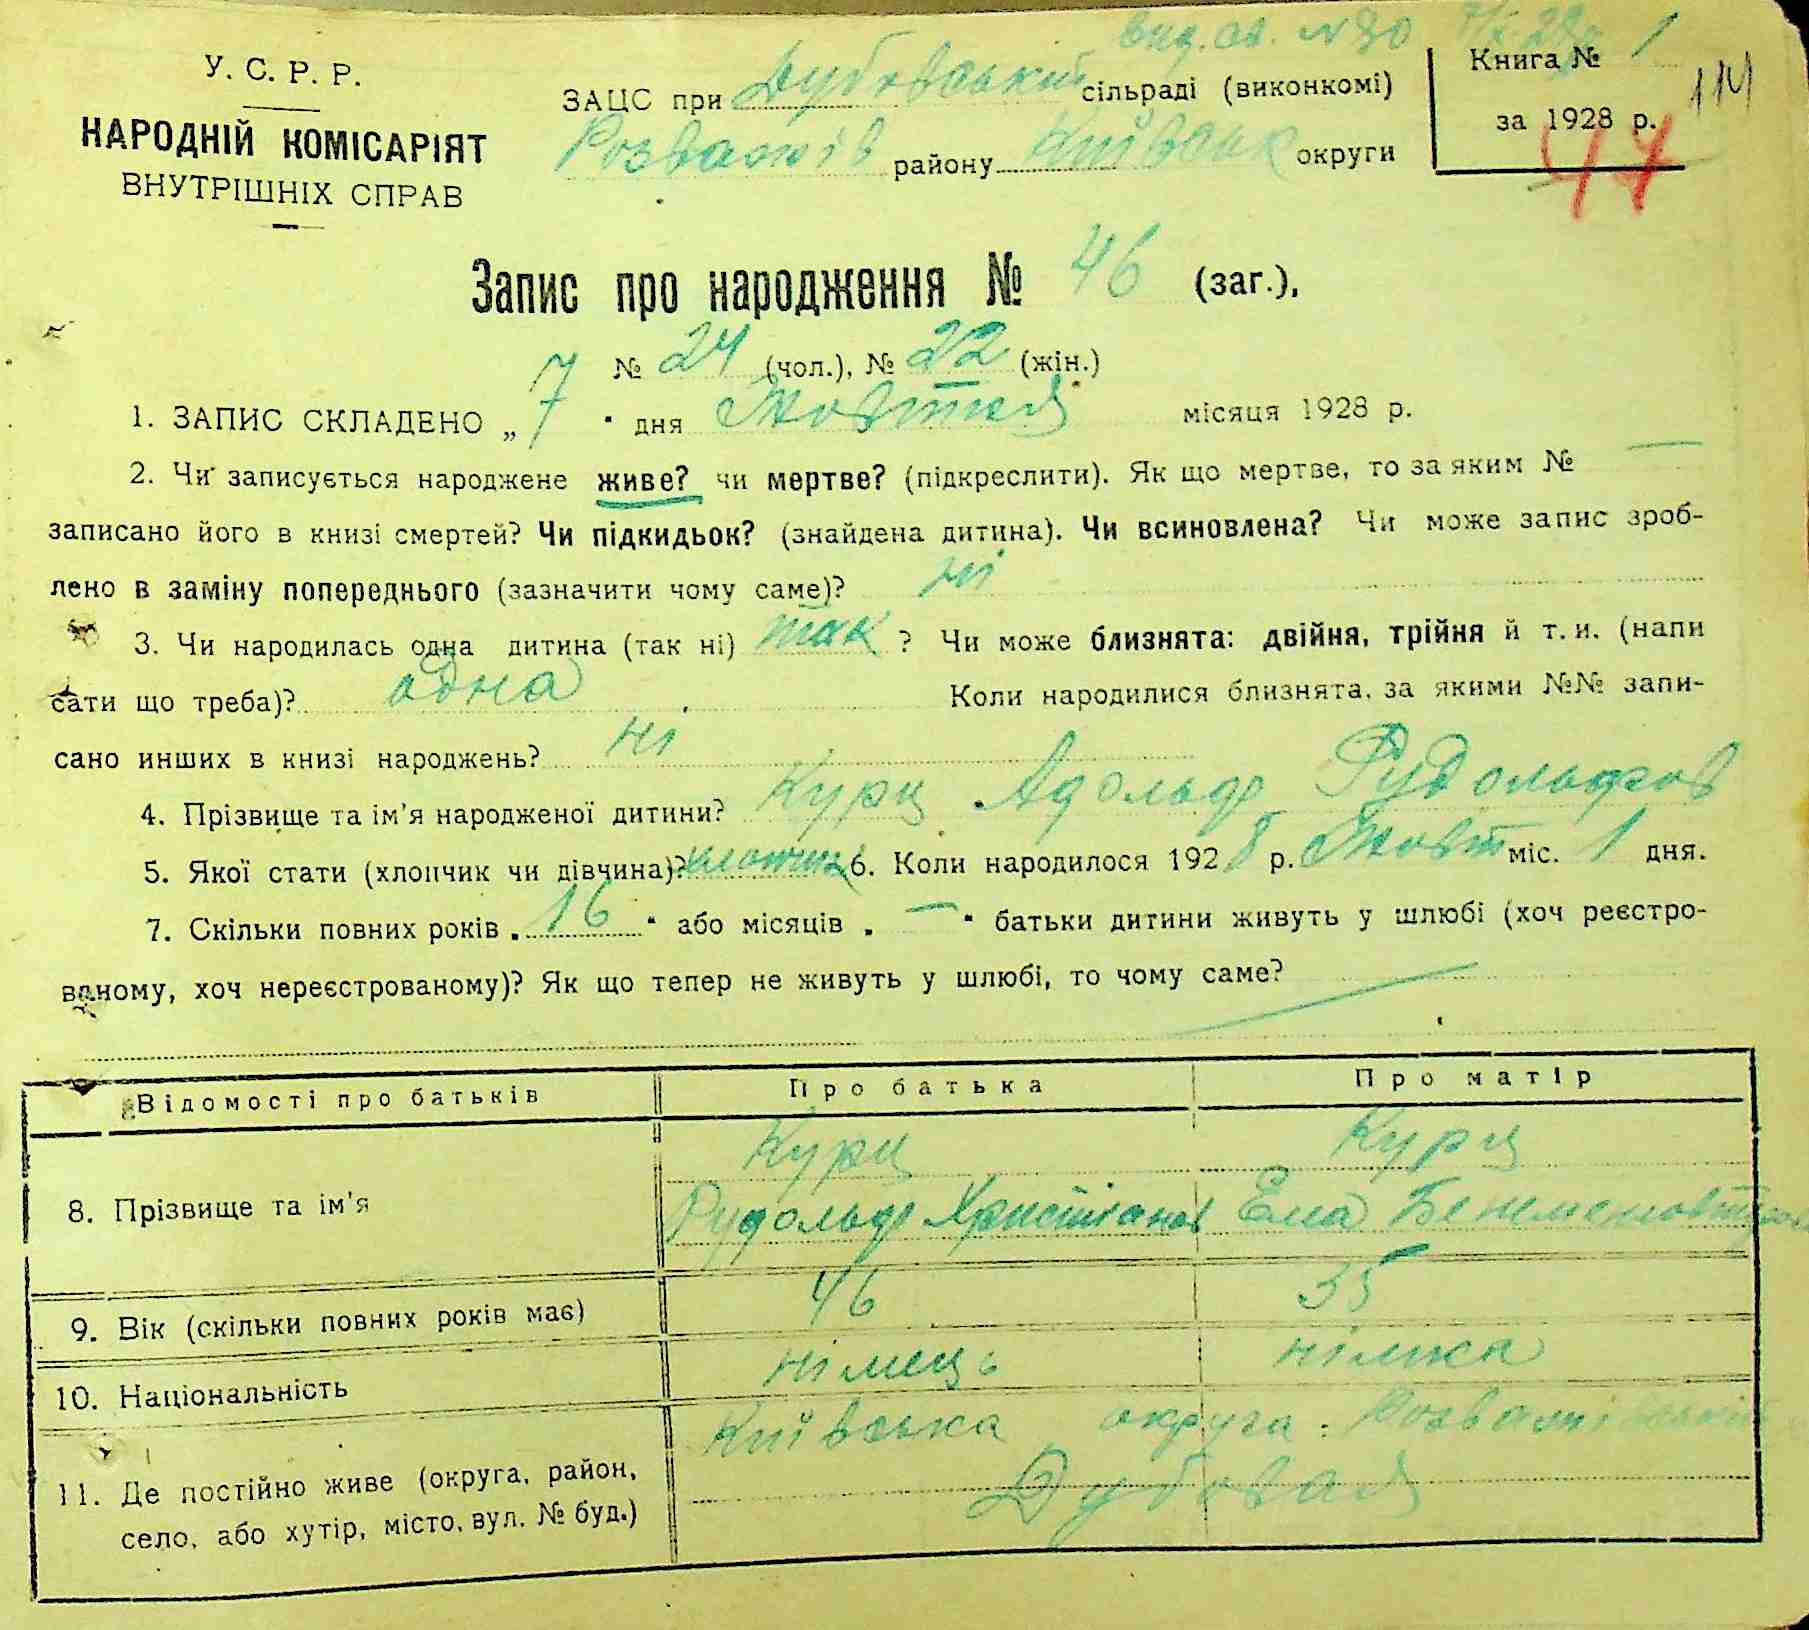 вид. св. №30
У. С. Р. Р.
НАРОДНІЙ КОМІСАРІЯТ
ВНУТРІШНІХ СПРАВ
ЗАЦС при Дубовській сільраді (виконкомі)
Розважів району Київськ округи
Книга № 1
за 1928 р.
114
47
Запис про народження № 46 (заг.),
№ 24 (чол.), № 22 (жін.)
7
1. ЗАПИС СКЛАДЕНО „ 7 “ дня Жовтня місяця 1928 р.
2. Чи записується народжене живе? чи мертве? (підкреслити). Як що мертве, то за яким № —
записано його в книзі смертей? Чи підкидьок? (знайдена дитина). Чи всиновлена? Чи може запис зроб-
лено в заміну попереднього (зазначити чому саме)? ні
3. Чи народилась одна дитина (так ні) так ? Чи може близнята: двійня, трійня й т. и. (напи
сати що треба)? одна Коли народилися близнята, за якими №№ запи-
сано инших в книзі народжень? ні
4. Прізвище та ім'я народженої дитини? Курц Адольф Рудольфов
5. Якої стати (хлопчик чи дівчина)? хлопчик 6. Коли народилося 1928 р. Жовт міс. 1 дня.
7. Скільки повних років „ 16 “ або місяців „ — “ батьки дитини живуть у шлюбі (хоч реєстро-
ваному, хоч нереєстрованому)? Як що тепер не живуть у шлюбі, то чому саме?
Відомості про батьків Про батька Про матір
Курц Курц
8. Прізвище та ім'я Рудольф Христіанов Ема
9. Вік (скільки повних років має) 46 35
10. Національність німець німка
11. Де постійно живе (округа, район, Київська округа: Розважівський
село, або хутір, місто, вул. № буд.) Дубовая